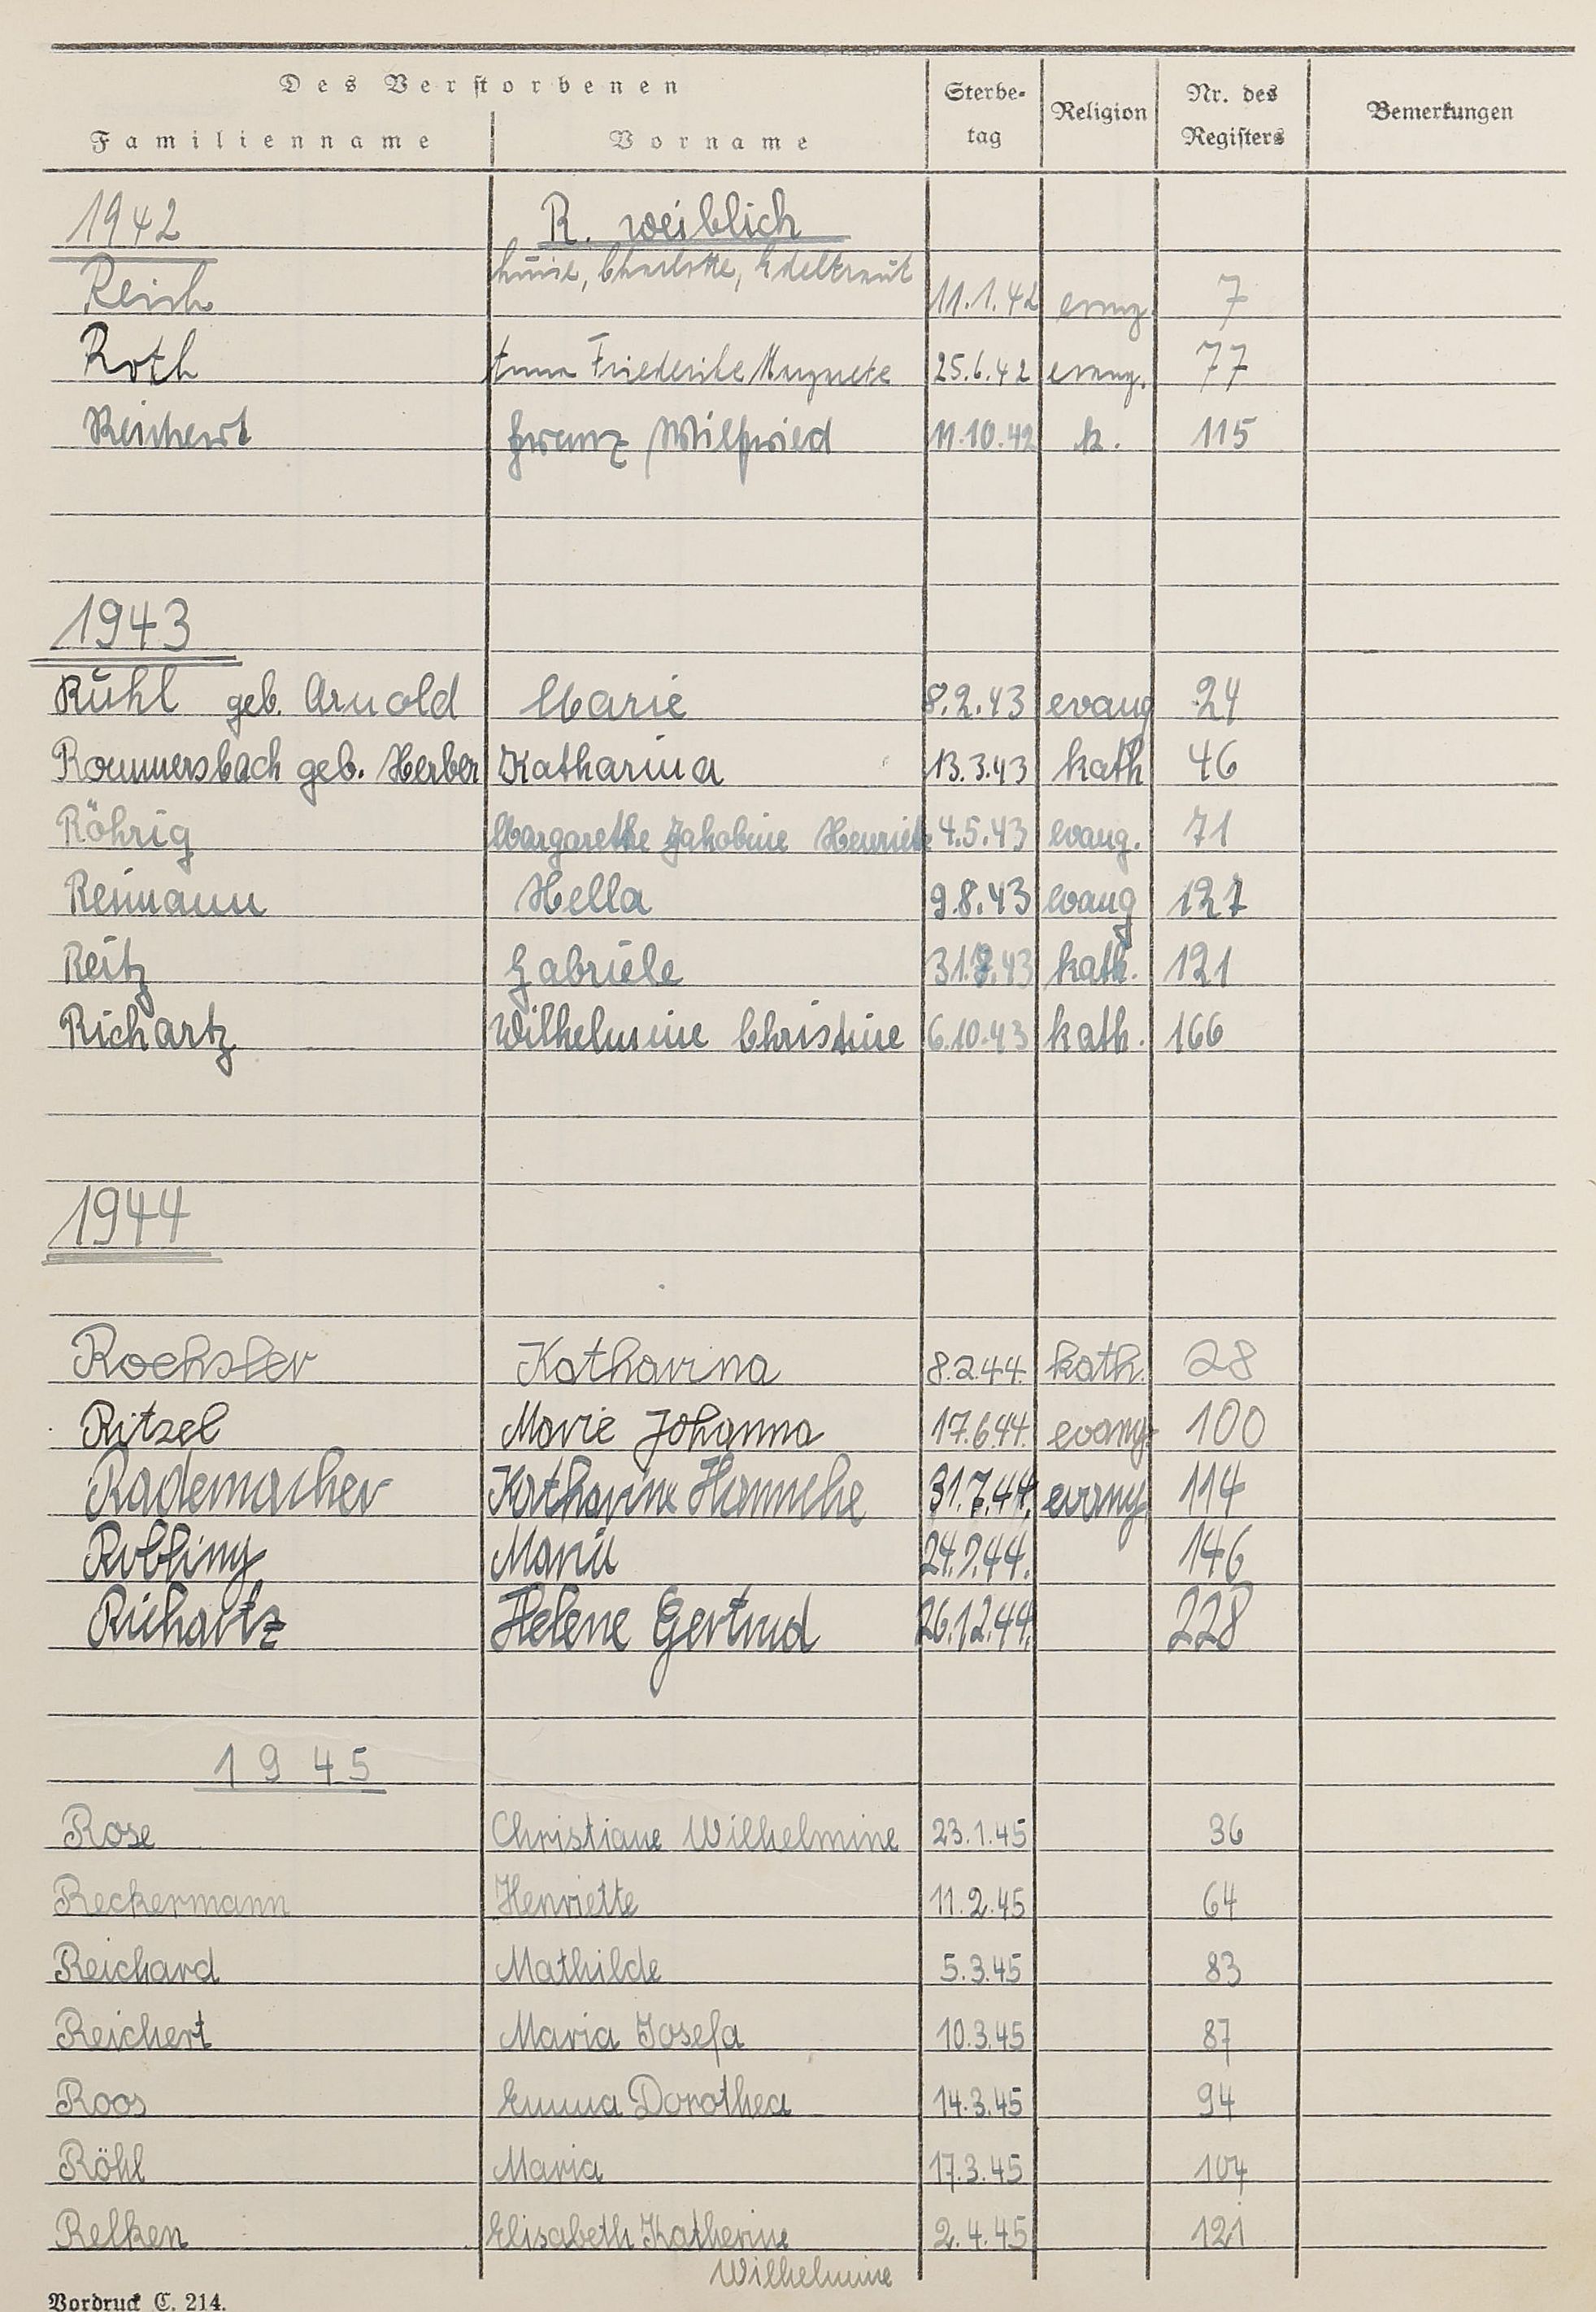 Des Verstorbenen
Familienname Vorname Sterbe-tag Religion Nr. des Registers Bemerkungen
1942 R. weiblich
Luise, Charlotte, Edeltraut
Reich 11.1.42 evang. 7
Roth Anna Friederike Margarete 25.6.42 evang. 77
Reichert Franz Wilfried 11.10.42 k. 115
1943
Rühl geb. Arnold Marie 8.2.43 evang 24
Rommersbach geb. Herber Katharina 13.3.43 kath 46
Röhrig Margarethe Jakobine Henriette 4.5.43 evang. 71
Reimann Hella 9.8.43 evang 127
Reitz Gabriele 31.7.43 kath. 121
Richartz Wilhelmine Christine 6.10.43 kath. 166
1944
Rochsler Katharina 8.2.44. kath. 28
Ritzel Marie Johanna 17.6.44. evang. 100
Rademacher Katharine Hannche 31.7.44. evang. 114
Marie 24.9.44. 146
Richartz Helene Gertrud 26.12.44. 228
1945
Rose Christiane Wilhelmine 23.1.45 36
Reckermann Henriette 11.2.45 64
Reichard Mathilde 5.3.45 83
Reichert Maria Josefa 10.3.45 87
Roos Emma Dorothea 14.3.45 94
Röhl Maria 17.3.45 104
Relken Elisabeth Katherine 2.4.45 121
Wilhelmine
Vordruck C. 214.